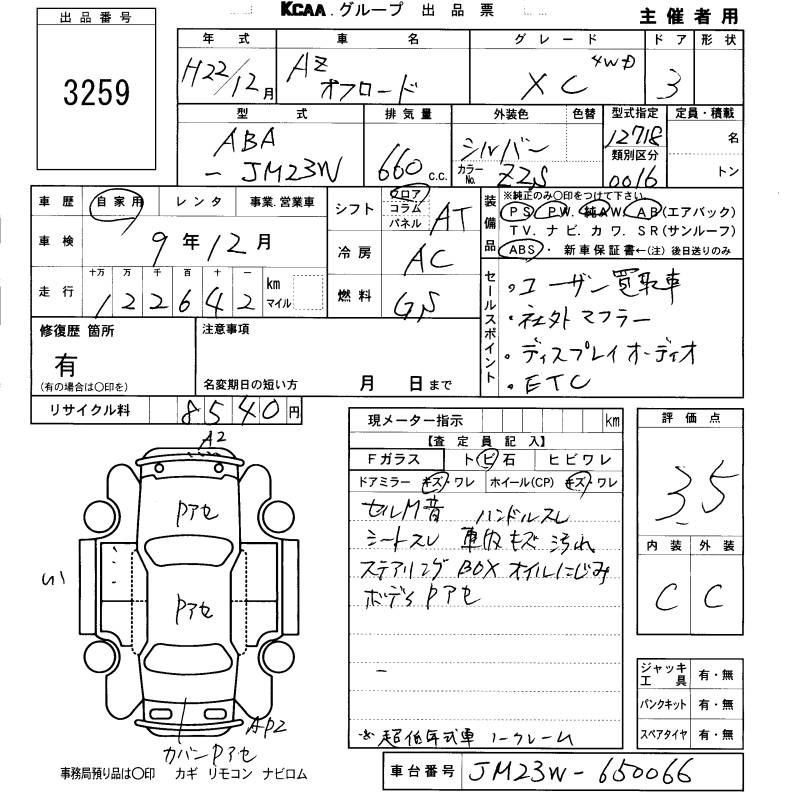 KCAA.グループ 出品票
主催者用
出品番号
3259
年式 車名 グレード ドア 形状
H22/12月 AZオフロード XC 4WD 3
型式 排気量 外装色 色替 型式指定 定員・積載
ABA-JM23W 660c.c. シルバー 12718 名
カラーNo. Z2S 類別区分 0016 トン
車歴 自家用 レンタ 事業.営業車
シフト フロア コラム パネル AT
装備品 ※純正のみ○印をつけて下さい。
PS PW. 純AW. AB(エアバック)
TV. ナビ. カワ. SR(サンルーフ)
ABS・新車保証書←(注)後日送りのみ
車検 9年12月
冷房 AC
走行 十万 万 千 百 十 一 km マイル
122642
燃料 GS
セールスポイント
・ユーザー買取車
・社外マフラー
・ディスプレイオーディオ
・ETC
修復歴 箇所
有
(有の場合は○印を)
注意事項
名変期日の短い方 月 日まで
リサイクル料 8540円
現メーター指示 km
【査定員記入】
Fガラス トビ石 ヒビワレ
ドアミラー キズ・ワレ ホイール(CP) キズ・ワレ
セルM音 ハンドルスレ
シートスレ 車内キズ 汚れ
ステアリングBOXオイルにじみ
ボディPアセ
※超低年式車 ノークレーム
評価点
3.5
内装 外装
C C
ジャッキ工具 有・無
パンクキット 有・無
スペアタイヤ 有・無
A2
Pアセ
Pアセ
AP2
カバンPアセ
事務局預り品は○印 カギ リモコン ナビロム
車台番号 JM23W-650066